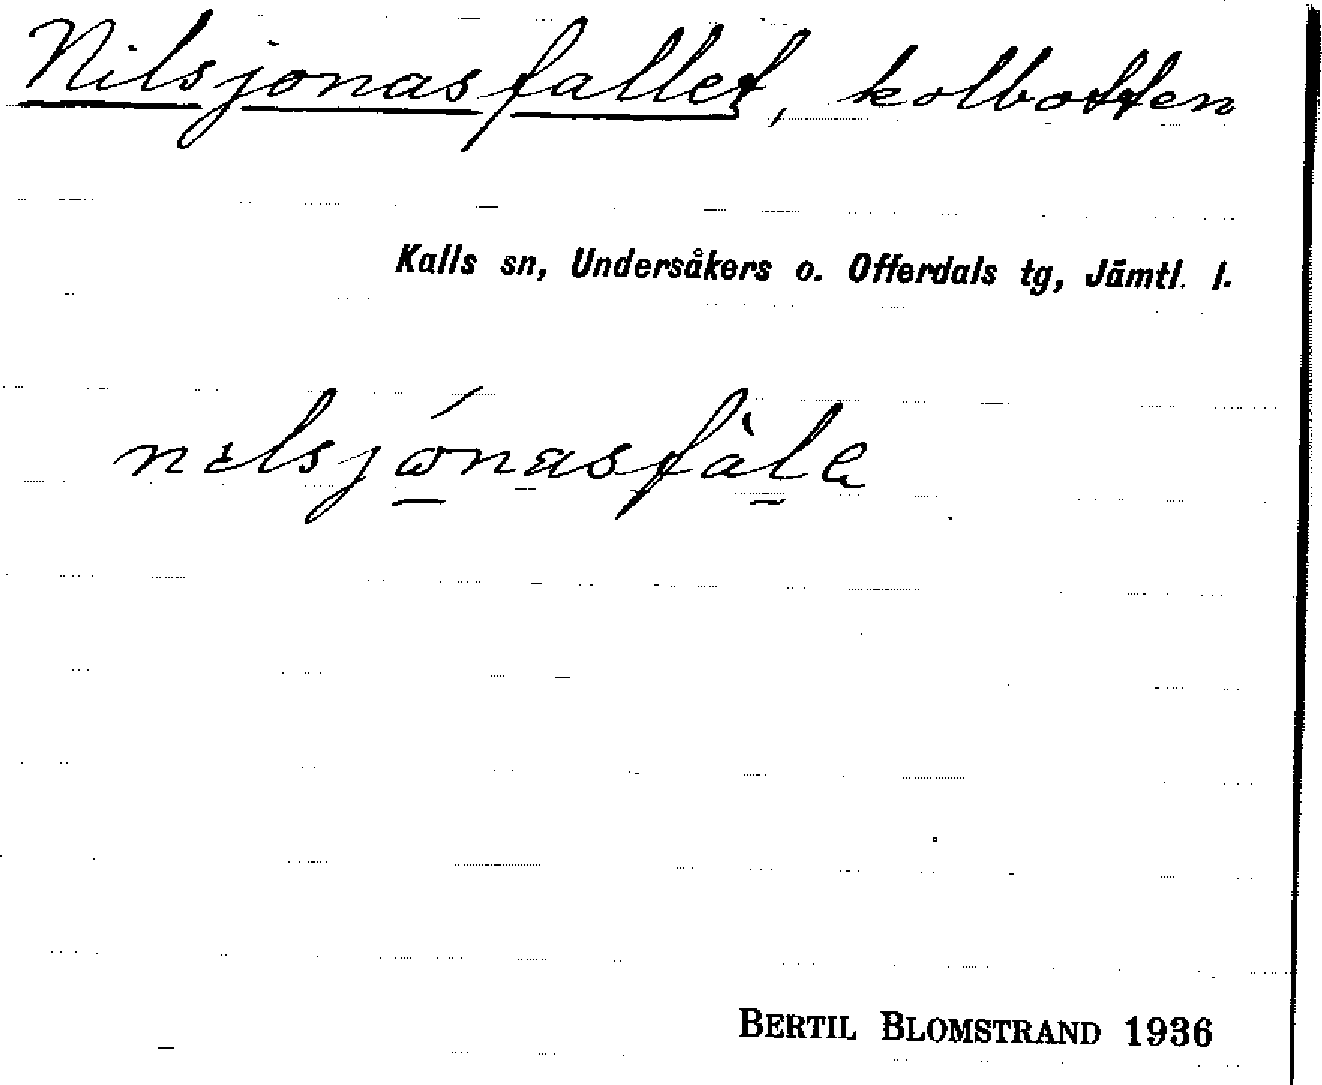 Nilsjonasfallet, kolbotten
Kalls sn, Undersåkers o. Offerdals tg, Jämtl. l.
BERTIL BLOMSTRAND 1936